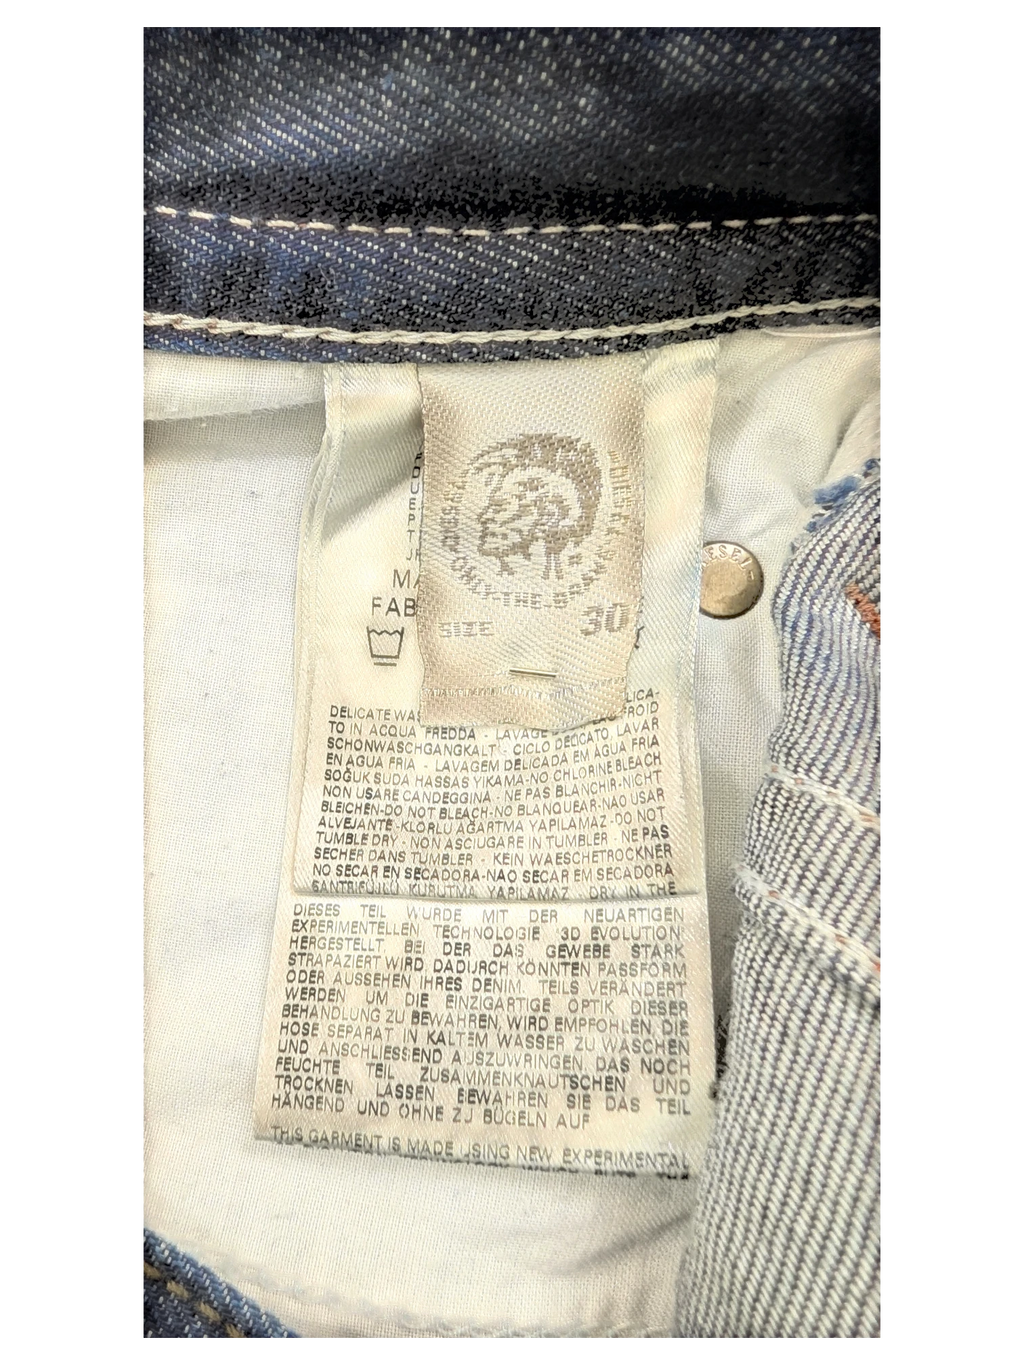 DIESEL
ONLY THE BRAVE
SIZE 30
MA
FAB
DELICATE WAS
LICA-
FROID
TO IN ACQUA FREDDA - LAVAGE
SCHONWASCHGANGKALT - CICLO DELICATO, LAVAR
EN AGUA FRIA - LAVAGEM DELICADA EM AGUA FRIA
SOĞUK SUDA HASSAS YIKAMA-NO CHLORINE BLEACH
NON USARE CANDEGGINA - NE PAS BLANCHIR-NICHT
BLEICHEN-DO NOT BLEACH-NO BLANQUEAR-NAO USAR
ALVEJANTE-KLORLU AĞARTMA YAPILAMAZ-DO NOT
TUMBLE DRY - NON ASCIUGARE IN TUMBLER - NE PAS
SECHER DANS TUMBLER - KEIN WAESCHETROCKNER
NO SECAR EN SECADORA-NAO SECAR EM SECADORA
SANTRIFUJLU KURUTMA YAPILAMAZ DRY IN THE
DIESES TEIL WURDE MIT DER NEUARTIGEN
EXPERIMENTELLEN TECHNOLOGIE 3D EVOLUTION
HERGESTELLT, BEI DER DAS GEWEBE STARK
STRAPAZIERT WIRD, DADURCH KÖNNTEN PASSFORM
ODER AUSSEHEN IHRES DENIM. TEILS VERÄNDERT
WERDEN UM DIE EINZIGARTIGE OPTIK DIESER
BEHANDLUNG ZU BEWAHREN, WIRD EMPFOHLEN, DIE
HOSE SEPARAT IN KALTEM WASSER ZU WASCHEN
UND ANSCHLIESSEND AUSZUWRINGEN, DAS NOCH
FEUCHTE TEIL ZUSAMMENKNAUTSCHEN UND
TROCKNEN LASSEN BEWAHREN SIE DAS TEIL
HÄNGEND UND OHNE ZU BÜGELN AUF
THIS GARMENT IS MADE USING NEW EXPERIMENTAL